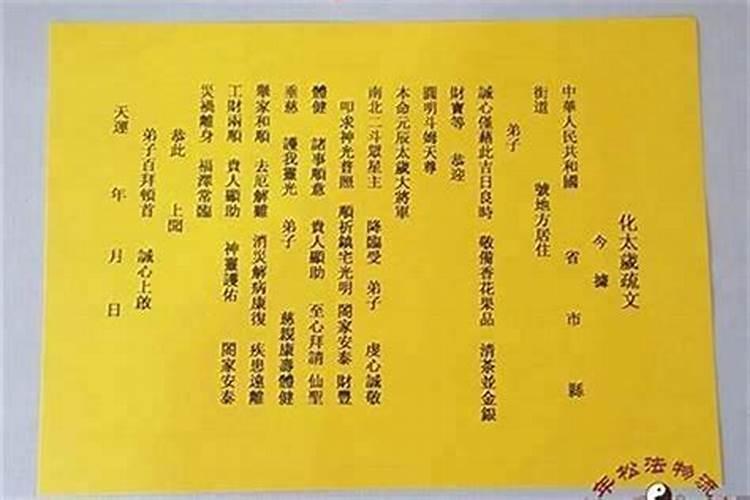 化太歲疏文
今據
中華人民共和國 省 市 縣
街道 號地方居住
弟子
誠心僅藉此吉日良時 敬備香花果品 清茶並金銀
財寶等 恭迎
圓明斗姆天尊
本命元辰太歲大將軍
南北二斗眾星主 降臨受 弟子 虔心誠敬
叩求神光普照 順祈鎮宅光明 閤家安泰 財豐
體健 諸事順意 貴人顯助 至心拜請 仙聖
垂慈 護我靈光 弟子 慈親康壽體健
舉家和順 去厄解難 消災解病康復 疾患遠離
工財兩順 貴人顯助 神靈護佑 閤家安泰
災禍離身 福澤常臨
恭此 上聞
弟子百拜頓首 誠心上啟
天運 年 月 日
松法物流